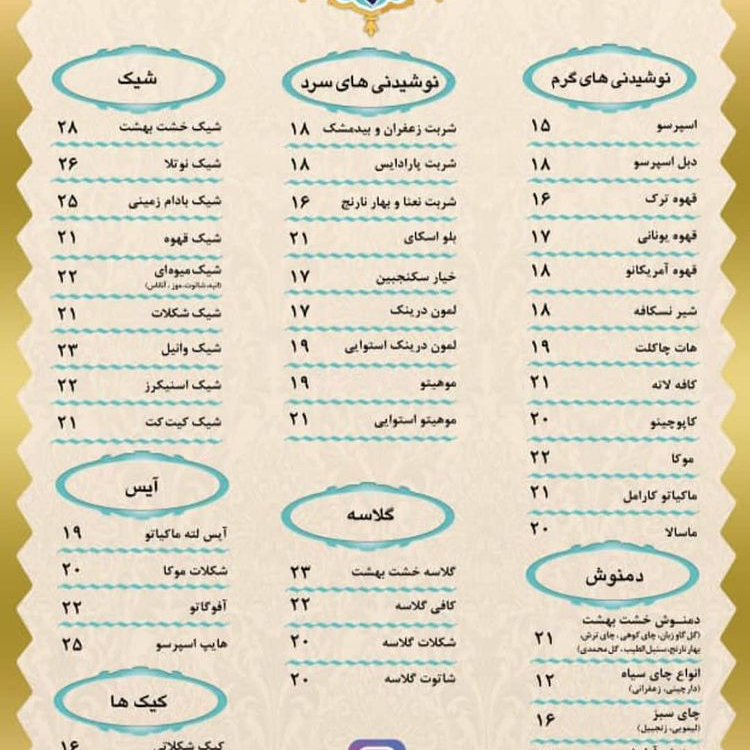 نوشیدنی های گرم
اسپرسو ۱۵
دبل اسپرسو ۱۸
قهوه ترک ۱۶
قهوه یونانی ۱۷
قهوه آمریکانو ۱۸
شیر نسکافه ۱۸
هات چاکلت ۱۹
کافه لاته ۲۱
کاپوچینو ۲۰
موکا ۲۲
ماکیاتو کارامل ۲۱
ماسالا ۲۰
دمنوش
دمنوش خشت بهشت ۲۱
(گل گاو زبان، چای کوهی، چای ترش،
بهار نارنج، سنبل الطیب، گل محمدی)
انواع چای سیاه ۱۲
(دارچینی، زعفرانی)
چای سبز ۱۶
(لیمویی، زنجبیل)
نوشیدنی های سرد
شربت زعفران و بیدمشک ۱۸
شربت پارادایس ۱۸
شربت نعنا و بهار نارنج ۱۶
بلو اسکای ۲۱
خیار سکنجبین ۱۷
لمون درینک ۱۷
لمون درینک استوایی ۱۹
موهیتو ۱۹
موهیتو استوایی ۲۱
گلاسه
گلاسه خشت بهشت ۲۳
کافی گلاسه ۲۲
شکلات گلاسه ۲۰
شاتوت گلاسه ۲۰
شیک
شیک خشت بهشت ۲۸
شیک نوتلا ۲۶
شیک بادام زمینی ۲۵
شیک قهوه ۲۱
شیک میوه‌ای ۲۲
(انبه، شاتوت، موز، آناناس)
شیک شکلات ۲۱
شیک وانیل ۲۳
شیک اسنیکرز ۲۲
شیک کیت کت ۲۱
آیس
آیس لته ماکیاتو ۱۹
شکلات موکا ۲۰
آفوگاتو ۲۲
هایپ اسپرسو ۲۵
کیک ها
کیک شکلاتی ۱۶